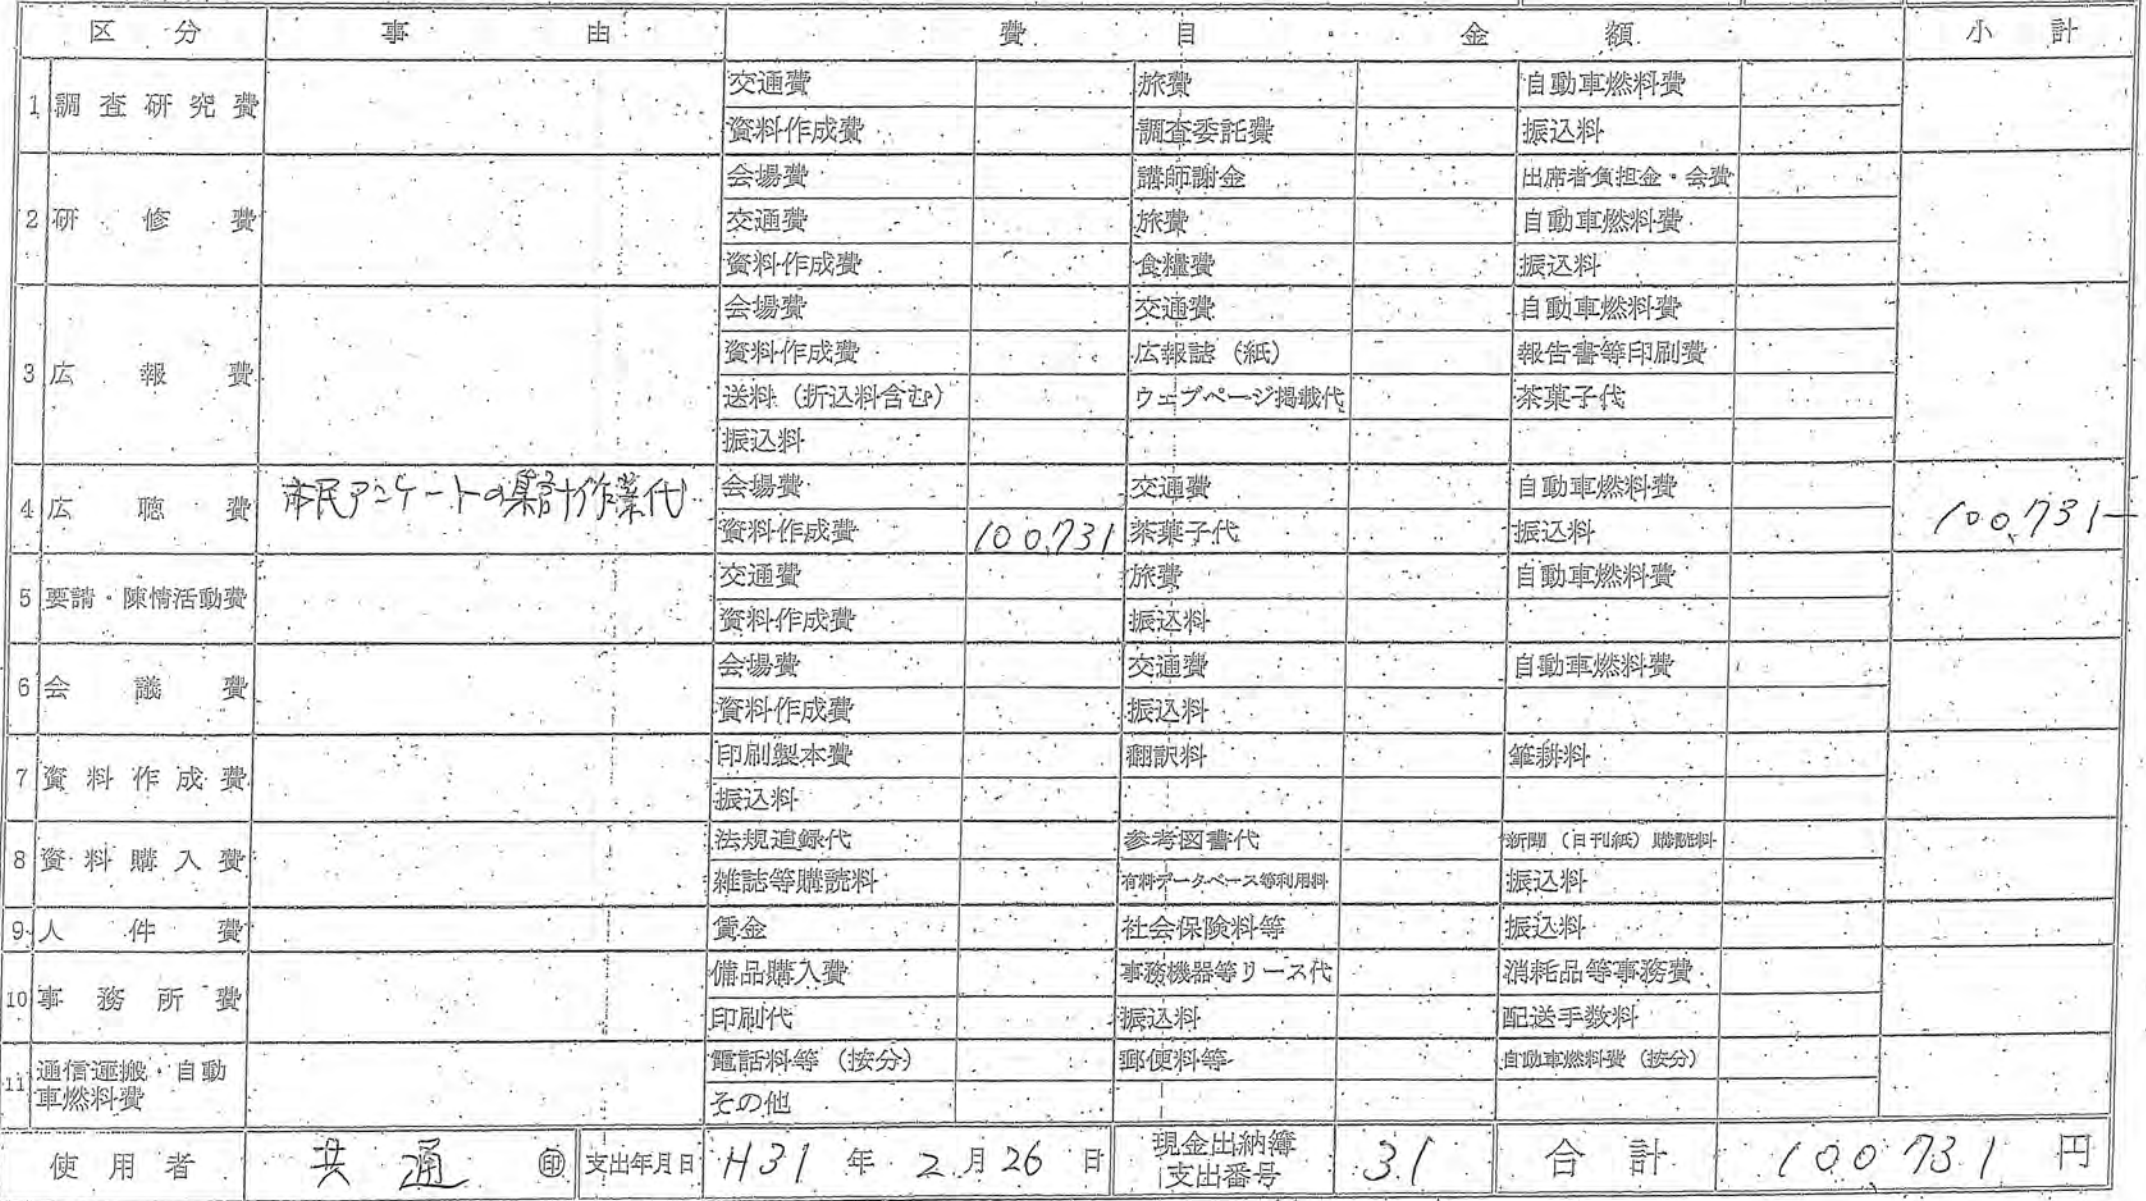 区分 事由 費目・金額 小計
1 調査研究費 交通費 旅費 自動車燃料費
資料作成費 調査委託費 振込料
2 研修費 会場費 講師謝金 出席者負担金・会費
交通費 旅費 自動車燃料費
資料作成費 食糧費 振込料
3 広報費 会場費 交通費 自動車燃料費
資料作成費 広報誌(紙) 報告書等印刷費
送料(折込料含む) ウェブページ掲載代 茶菓子代
振込料
4 広聴費 市民アンケートの集計作業代 会場費 交通費 自動車燃料費
資料作成費 100,731 茶菓子代 振込料 100,731-
5 要請・陳情活動費 交通費 旅費 自動車燃料費
資料作成費 振込料
6 会議費 会場費 交通費 自動車燃料費
資料作成費 振込料
7 資料作成費 印刷製本費 翻訳料 筆耕料
振込料
8 資料購入費 法規追録代 参考図書代 新聞(日刊紙)購読料
雑誌等購読料 有料データベース等利用料 振込料
9 人件費 賃金 社会保険料等 振込料
10 事務所費 備品購入費 事務機器等リース代 消耗品等事務費
印刷代 振込料 配送手数料
11 通信運搬・自動車燃料費 電話料等(按分) 郵便料等 自動車燃料費(按分)
その他
使用者 共通 印 支出年月日 H31年2月26日 現金出納簿支出番号 31 合計 100731円